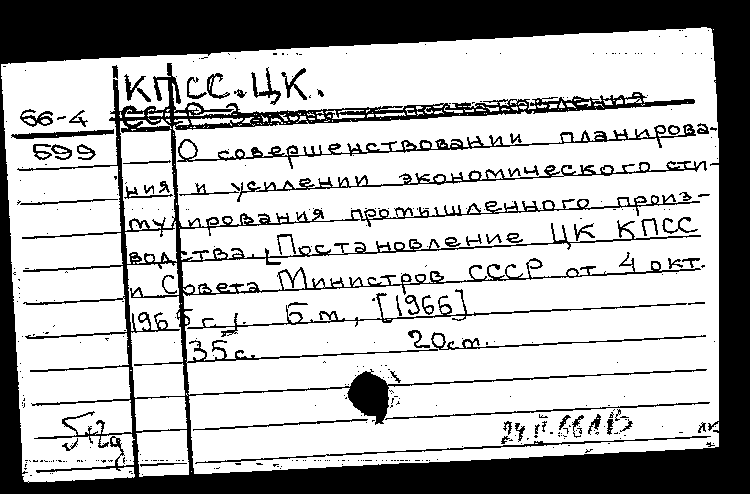 КПСС. ЦК.
66-4 СССР. Законы и постановления
599 О совершенствовании планирова-
ния и усилении экономического сти-
мулирования промышленного произ-
водства. [Постановление ЦК КПСС
и Совета Министров СССР от 4 окт.
1965 г.]. Б.м., [1966].
35 с. 20 см.